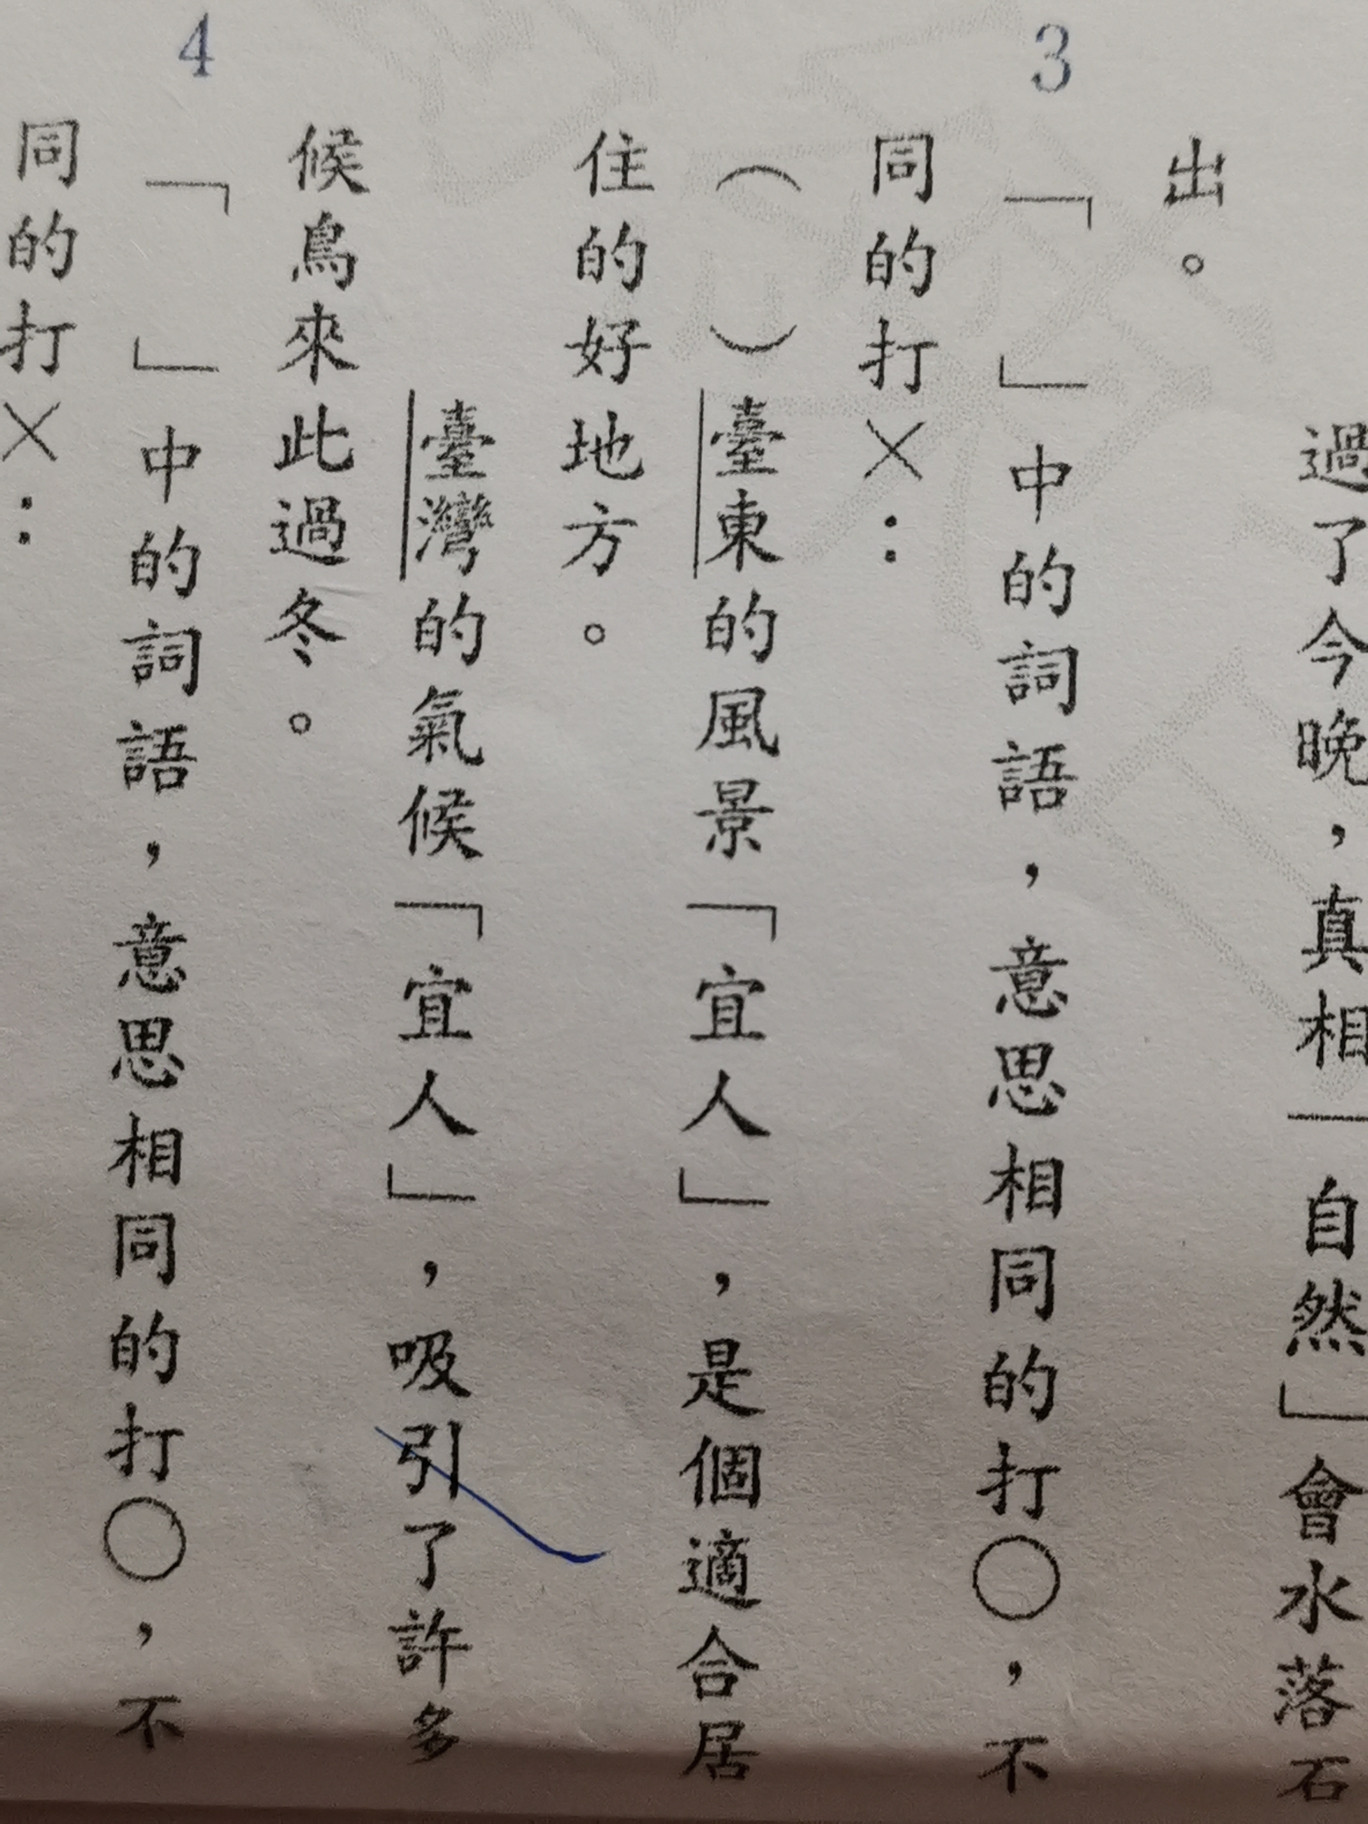 過了今晚，真相「自然」會水落石
出。
3
「　」中的詞語，意思相同的打○，不
同的打×：
（　）臺東的風景「宜人」，是個適合居
住的好地方。
臺灣的氣候「宜人」，吸引了許多
候鳥來此過冬。
4
「　」中的詞語，意思相同的打○，不
同的打×：